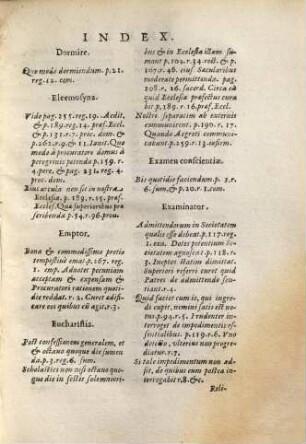 INDEX.
Dormire.
Quo modo dormiendum. p. 21.
reg. 12. com.
Eleemosyna.
Vide pag. 255. r. 19. Ædit,
& p. 189. reg. 14. præf. Eccl.
& p. 131. r. 7. proc. dom. &
p. 262. r. 9. & 11. Ianit. Quo
modo à procuratore domus à
peregrinis petenda p. 159. r.
4. pere. & p. 231. reg. 4.
proc. dem.
Eius arcula non sit in nostra
Ecclesia. p. 189. r. 15. præf.
Eccl. Qua superioribus præ
scribenda p. 54. r. 96. prou.
Emptor,
Bona & commodissimo pretio
tempestiuè emat p. 167. reg.
1. emp. Adnotet pecuniam
acceptam & expensam &
Procuratori rationem quoti-
die reddat. r. 2. Curet adisse-
rare eos quibus cũ agit r. 3.
Eucharistia.
Post confessionem generalem, et
& octauo quoque die sumen
da. p. 3. reg. 6. sum.
Scholastici non nisi octauo quo
que die in festis solemniori-
bus & in Ecclesia ictam su-
mant p. 102. r. 34. rect. & p.
107. r. 46. eius Sæcularibus
moderatè permittenda. pag.
108. r. 26. sacerd. Circa eā
quid Ecclesiæ præfectus curā
bit p. 189. r. 16. præf. Eccl.
Nostri separatim ab externis
communicent. p. 190. r. 17.
Quando Aegroti communi-
catunt p. 259. r. 13. infirm.
Examen conscientiæ.
Bis quotidie faciendum. p. 3. r.
6. sum, & p. 20. r. 1. com.
Examinator.
Admittendorum in Societatem
qualis esse debeat. p. 117. reg
1. exa. Dotes petentium So-
cietatem agnoscat p. 118. r.
3. Ineptos statim dimittat.
Superiori referri curet quid
Patres de dimittendo sentiant
r. 4.
Quid faciet cum is, qui ingre-
di cupit, nemini satis est no-
tus p. 94. r. 5. Prudenter in-
terroget de impedimentis ef-
sentialibus. p. 119. r. 6. Vno
detecto, vlterius non progre-
diatur r. 7.
Si tale impedimentum non ad-
sit, de quibus eum postea in-
terrogabit r. 8. &c.
Reli-